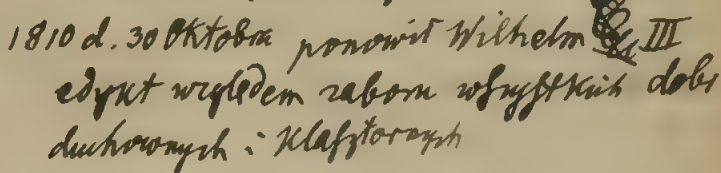 1810 d. 30 Oktobra ponowił Wilhelm III
edykt względem zaboru wſzyſtkich dobr
duchownych i Klaſztornych